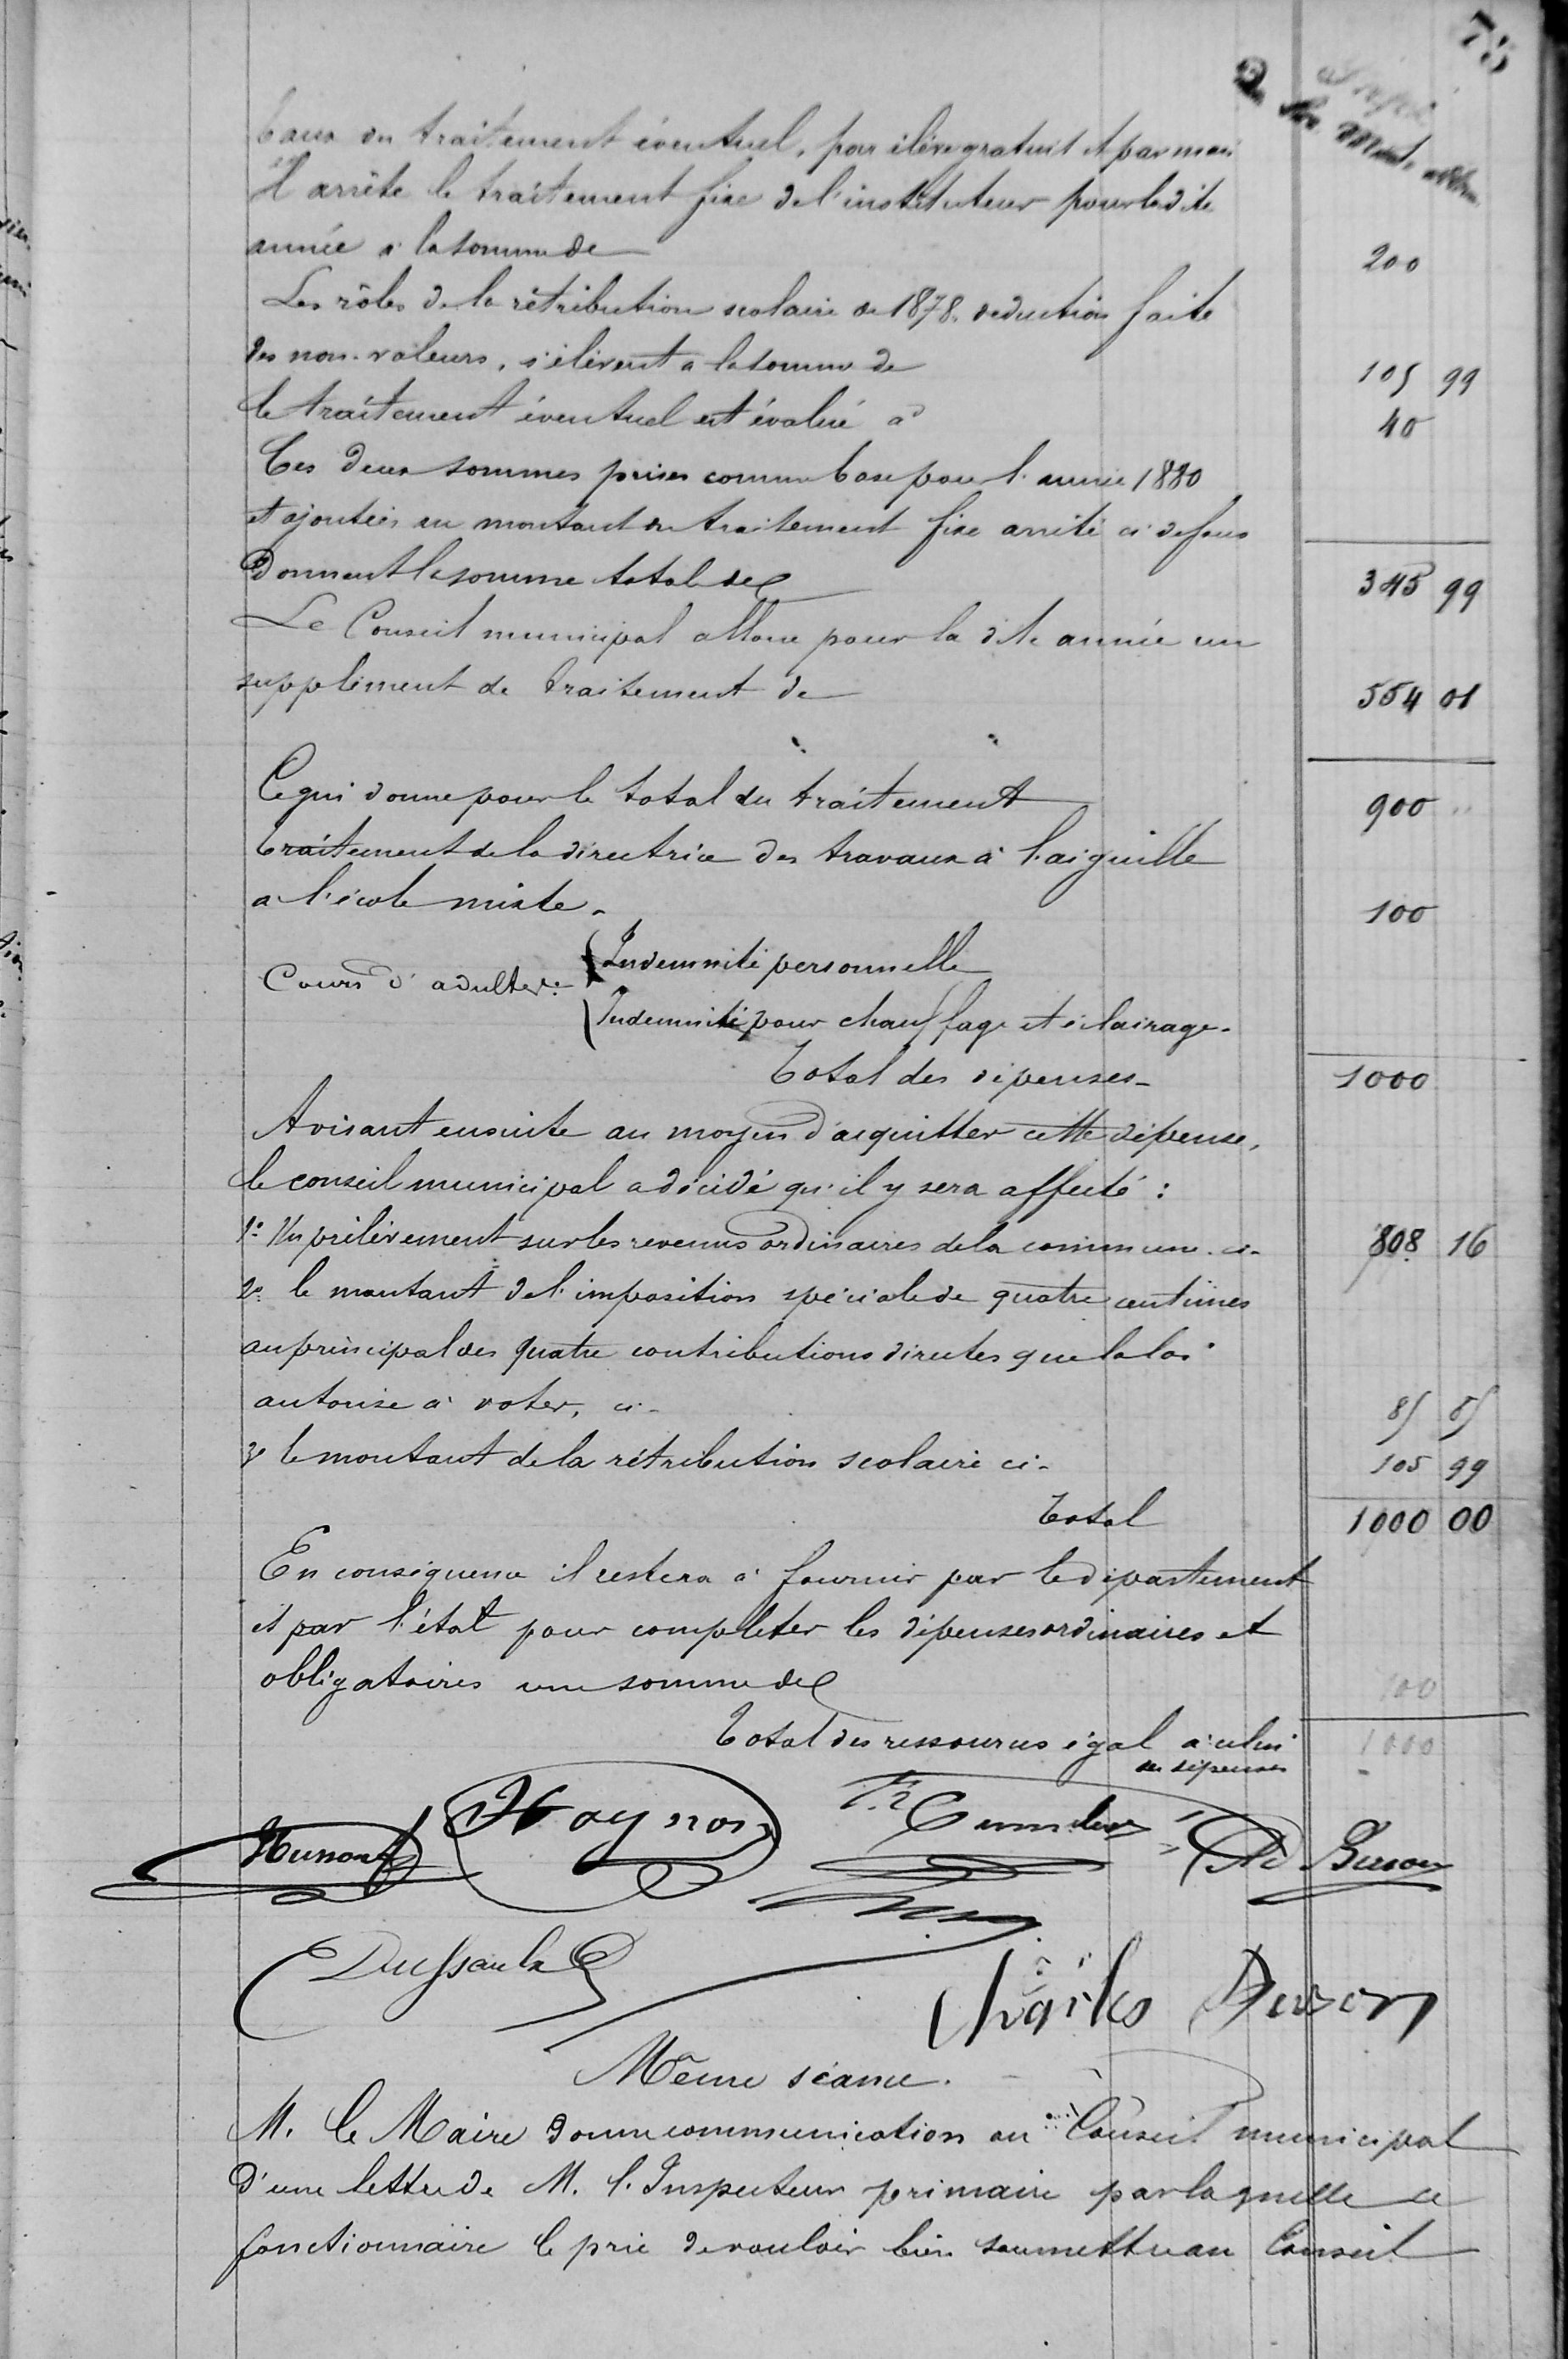 75
taux du traitement éventuel, par élève gratuit et par mois
Il arrête le traitement fixe de l'instituteur pour ladite
année à la somme de 200
Les rôles de la rétribution scolaire de 1878, déduction faite
des non-valeurs, s'élèvent à la somme de 105 99
le traitement éventuel est évalué à 40
Ces deux sommes prises comme base pour l'année 1880
et ajoutées au montant du traitement fixe arrêté ci dessus
donnent la somme totale de 345 99
Le Conseil municipal alloue pour la dite année un
supplément de traitement de 554 01
Ce qui donne pour le total du traitement 900 "
Traitement de la directrice des travaux à l'aiguille
a l'école mixte. 100
Cours d'adultes: { Indemnité personnelle
{ Indemnité pour chauffage et éclairage.
Total des dépenses 1000
Avisant ensuite au moyen d'acquitter cette dépense,
le conseil municipal a décidé qu'il y sera affecté :
1° Un prélèvement sur les revenus ordinaires de la commune. ci- 808 16
2° le montant de l'imposition spéciale de quatre centimes
au principal des quatre contributions directes que la loi
autorise à voter, ci- 85 85
3° le montant de la rétribution scolaire ci- 105 99
Total 1000 00
En conséquence il restera à fournir par le département
et par l'état pour completer les dépenses ordinaires et
obligatoires une somme de 100
Total des ressources égal à celui 1000
des dépenses
Dussaulx
Charles Buson
Même séance.
M. le Maire donne communication au Conseil municipal
d'une lettre de M. l'Inspecteur primaire par laquelle ce
fonctionnaire le prie de vouloir bien soumettre au Conseil